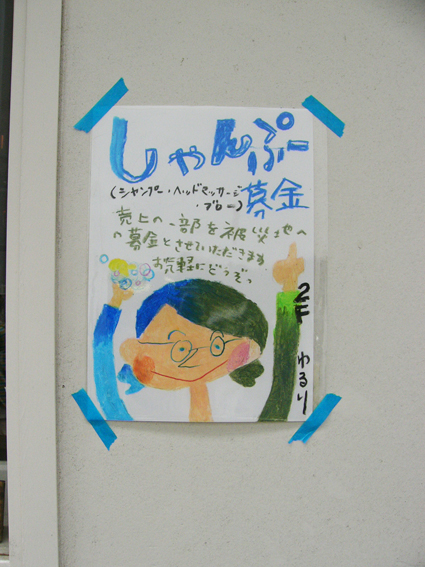 しゃんぷー
(シャンプー・ヘッドマッサージ
・ブロー)
募金
売上の一部を被災地へ
の募金とさせていただきます
お気軽にどうぞっ
2F ゆるり